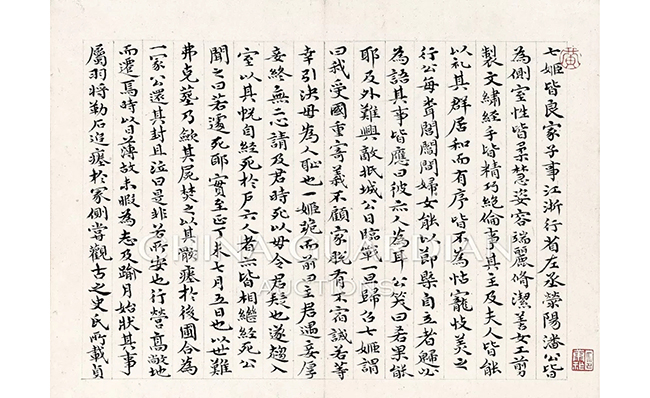 七姬皆良家子事江浙行省左丞滎陽潘公皆
為側室性皆柔慧姿容端麗脩潔善女工剪
製文繡經手皆精巧絕倫事其主及夫人皆能
以禮其群居和而有序皆不為怙寵忮美之
行公每聞閭閻婦女能以節槩自立者歸必
為語其事皆應曰彼亦人為耳公笑曰若果能
耶及外難興敵抵城公日臨戰一旦歸召七姬謂
曰我受國重寄義不顧家脫有不宿誡若等
宜引決毋為人耻也一姬跪而前曰主君遇妾厚
妾終無二心請及君時死以毋令君疑也遂趨入
室以其帨自經死於戶六人者亦皆相繼經死公
聞之曰若遽死耶實至正丁未七月五日也以世難
弗克塟乃歛其屍焚之以其骸瘞於後圃合為
一冢公還其封且泣曰是非若所安也行營髙敞地
而遷焉時以日薄故未暇為志及踰月始狀其事
屬羽將勒石追瘞於冢側嘗觀古之史氏所載貞
CHINA GUARDIAN
AUCTIONS